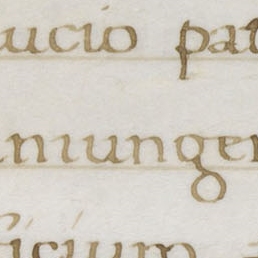 aucio pat
niunger
ricium